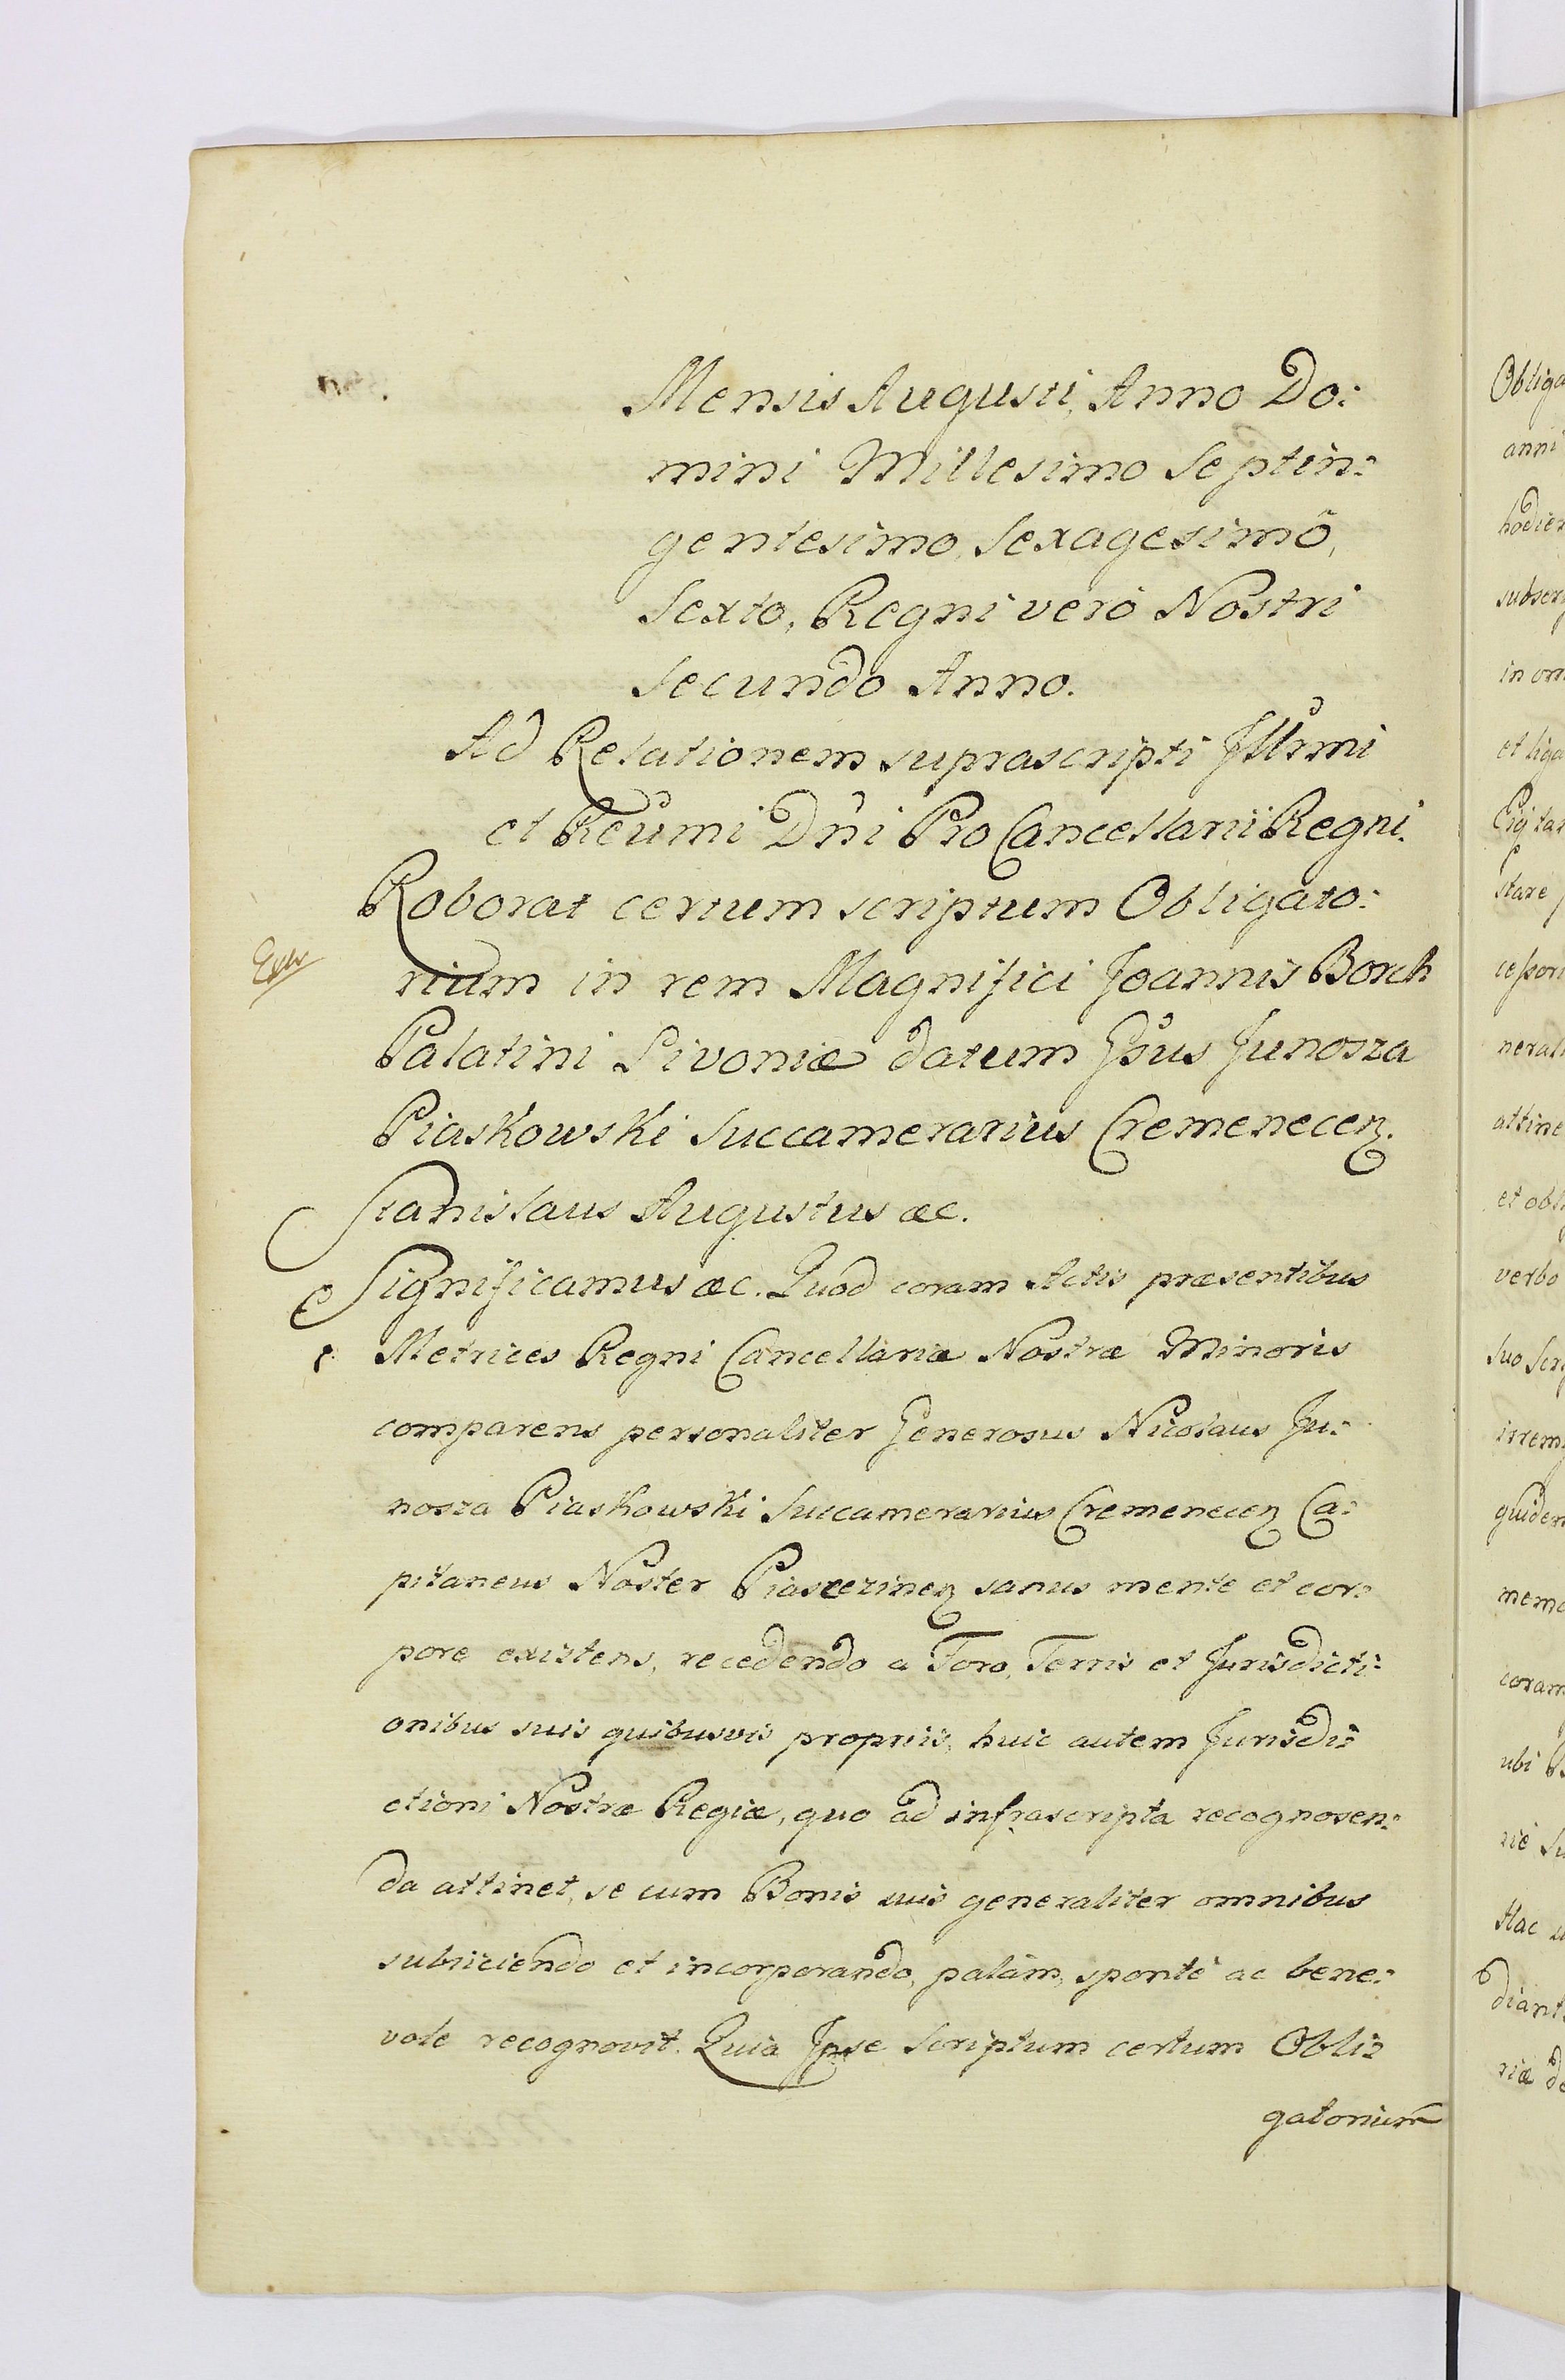 Mensis Augusti, Anno Do:
mini Millesimo Septin:
gentesimo, Sexagesimô,
Sexto, Regni verò Nostri
Secundo Anno.
Ad Relationem suprascripti Jllrmi
et Reumi Dni Pro Cancellarii Regni.
Roborat certum scriptum Obligato:
rium in rem Magnifici Joannis Borch
Palatini Livoniæ datum Gsus Junosza
Piaskowski Succamerarius Cremenecen.
Stanislaus Augustus æc.
Significamus æc. Quod coram Actis præsentibus
Metrices Regni Cancellariæ Nostræ Minoris
comparens personaliter Generosus Nicolaus Ju:
nosza Piaskowski Succamerarius Cremenecen Ca:
pitaneus Noster Piaseczinen sanus mente et cor:
pore existens, recedendo a Foro, Terris et Jurisdicti:
onibus suis quibusvis propriis, huic autem Jurisdi:
ctioni Nostræ Regiæ, quo ad infrascripta recognosen:
da attinet, se cum Bonis suis generaliter omnibus
subiiciendo et incorporando, palàm, spontè ac bene:
vole recognovit. Quia Jpse Scriptum certum Obli:
gatorium
Obliga
anni
hodier
subscr
in om
et liga
stare
nerali
attine
et obli
verbo
suo Scr
irrem
quidem
memo
coram
ubi
Hac
diant
riæ de